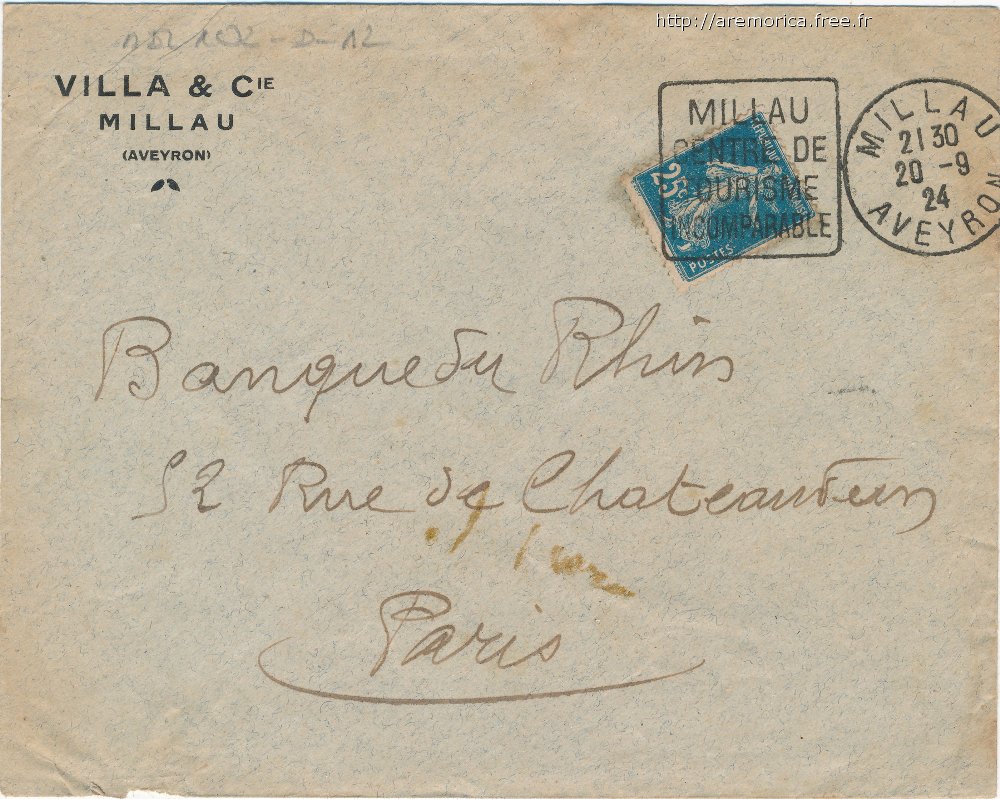 http://aremorica.free.fr
VILLA & CIE
MILLAU
(AVEYRON)
MILLAU
CENTRE DE
TOURISME
INCOMPARABLE
MILLAU
21 30
20 - 9
24
AVEYRON
25c
POSTES
Banque du Rhin
52 Rue de Chateaudun
Paris